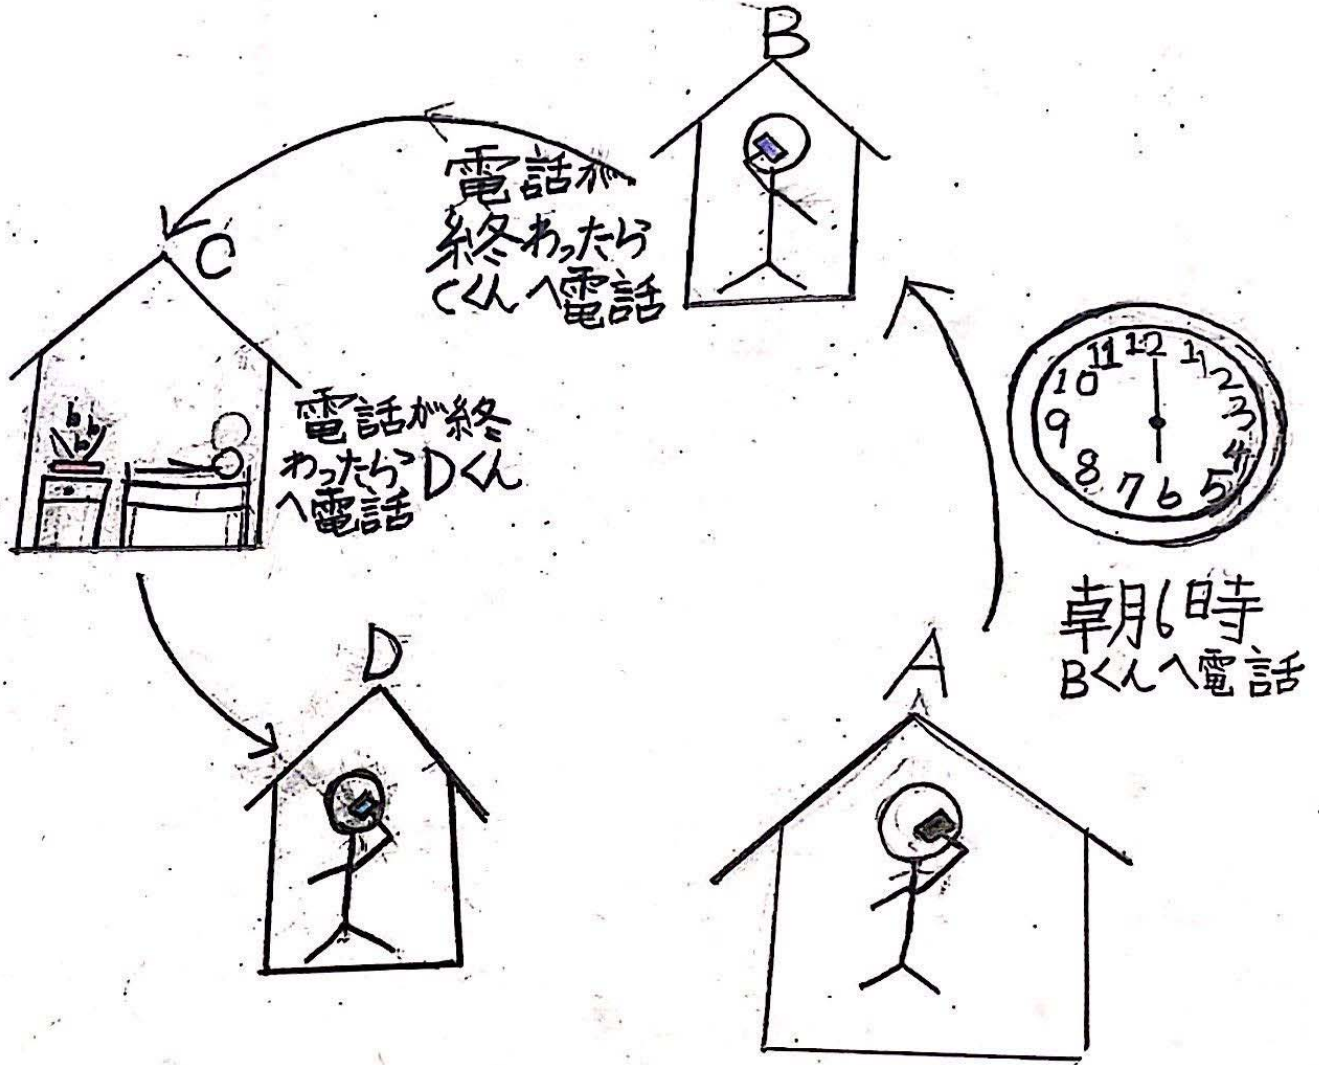 B
電話が
終わったら
Cくんへ電話
C
電話が終
わったらDくん
へ電話
12
1
2
3
4
5
6
7
8
9
10
11
朝6時
Bくんへ電話
A
D